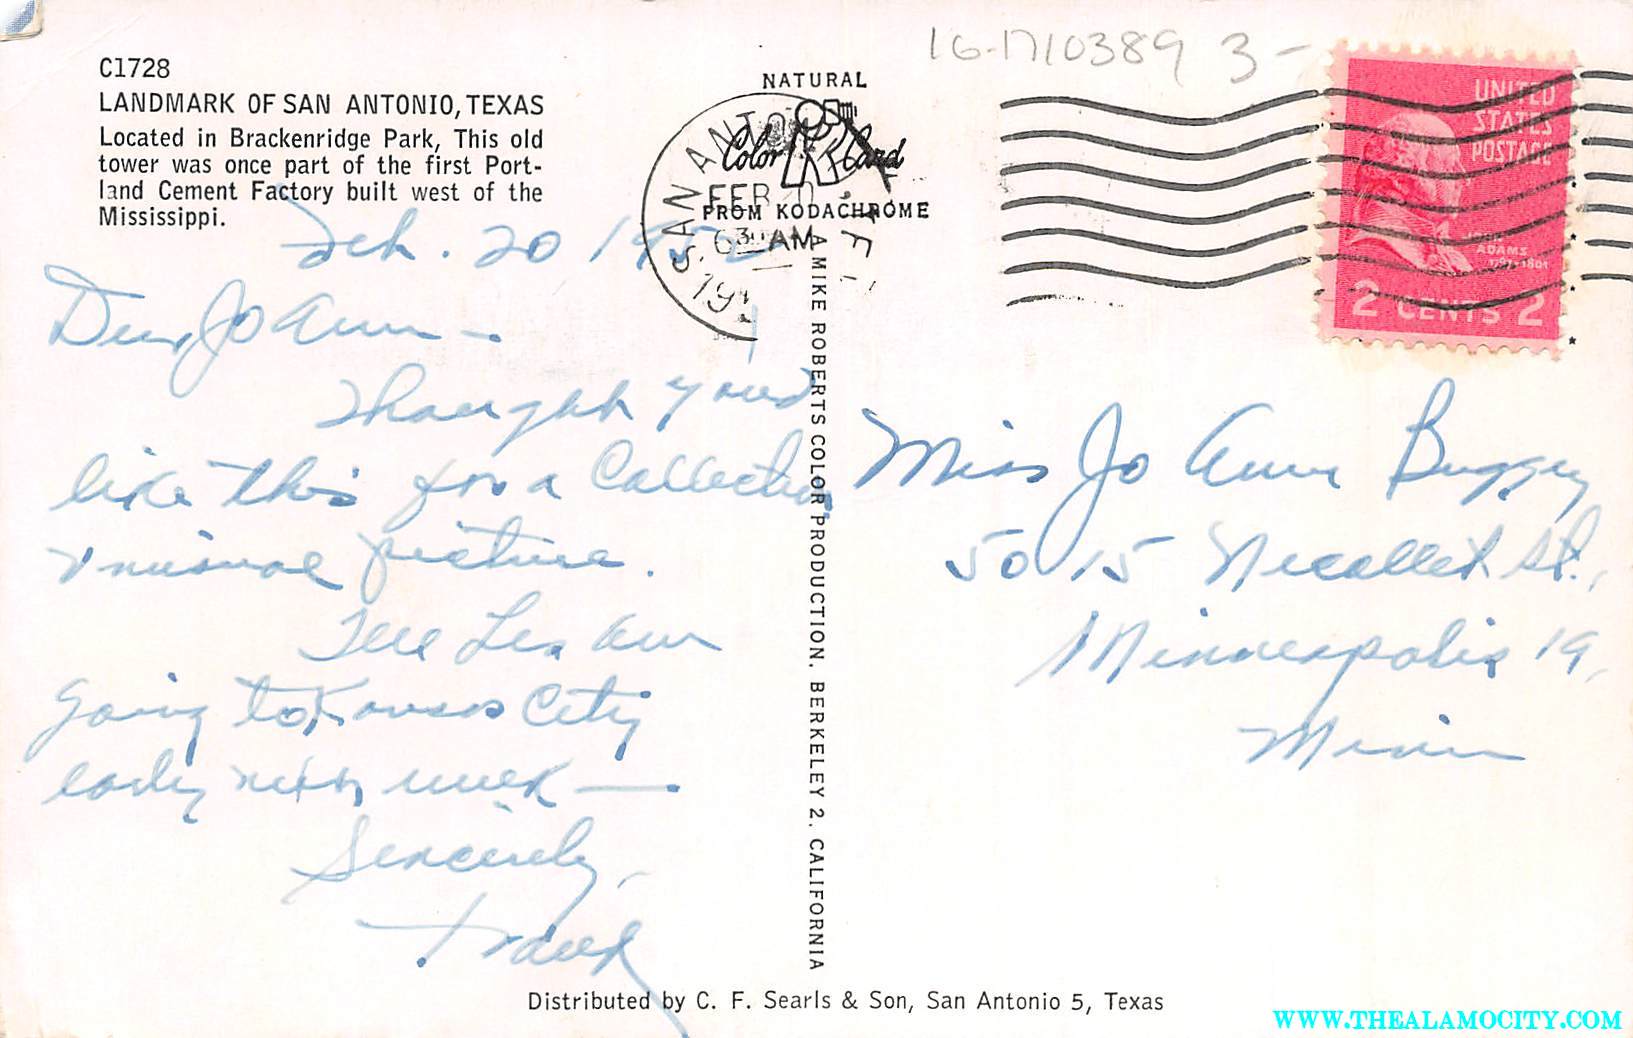 16-1710389 3-
C1728
LANDMARK OF SAN ANTONIO, TEXAS
Located in Brackenridge Park, This old
tower was once part of the first Port-
land Cement Factory built west of the
Mississippi.
NATURAL
Color Card
FROM KODACHROME
SAN ANTONIO
FEB
630 AM
UNITED
STATES
POSTAGE
JOHN
ADAMS
1797-1801
2 CENTS 2
Feb. 20 195
Dear Jo Ann -
Thought you'd
like this for a Collection
unusual picture.
Tell Les am
going to Kansas City
early next week —
Sincerely,
Frank
A MIKE ROBERTS COLOR PRODUCTION. BERKELEY 2. CALIFORNIA
Miss Jo Ann Buggey
5015 Nicollet St.,
Minneapolis 19,
Minn
Distributed by C. F. Searls & Son, San Antonio 5, Texas
WWW.THEALAMOCITY.COM